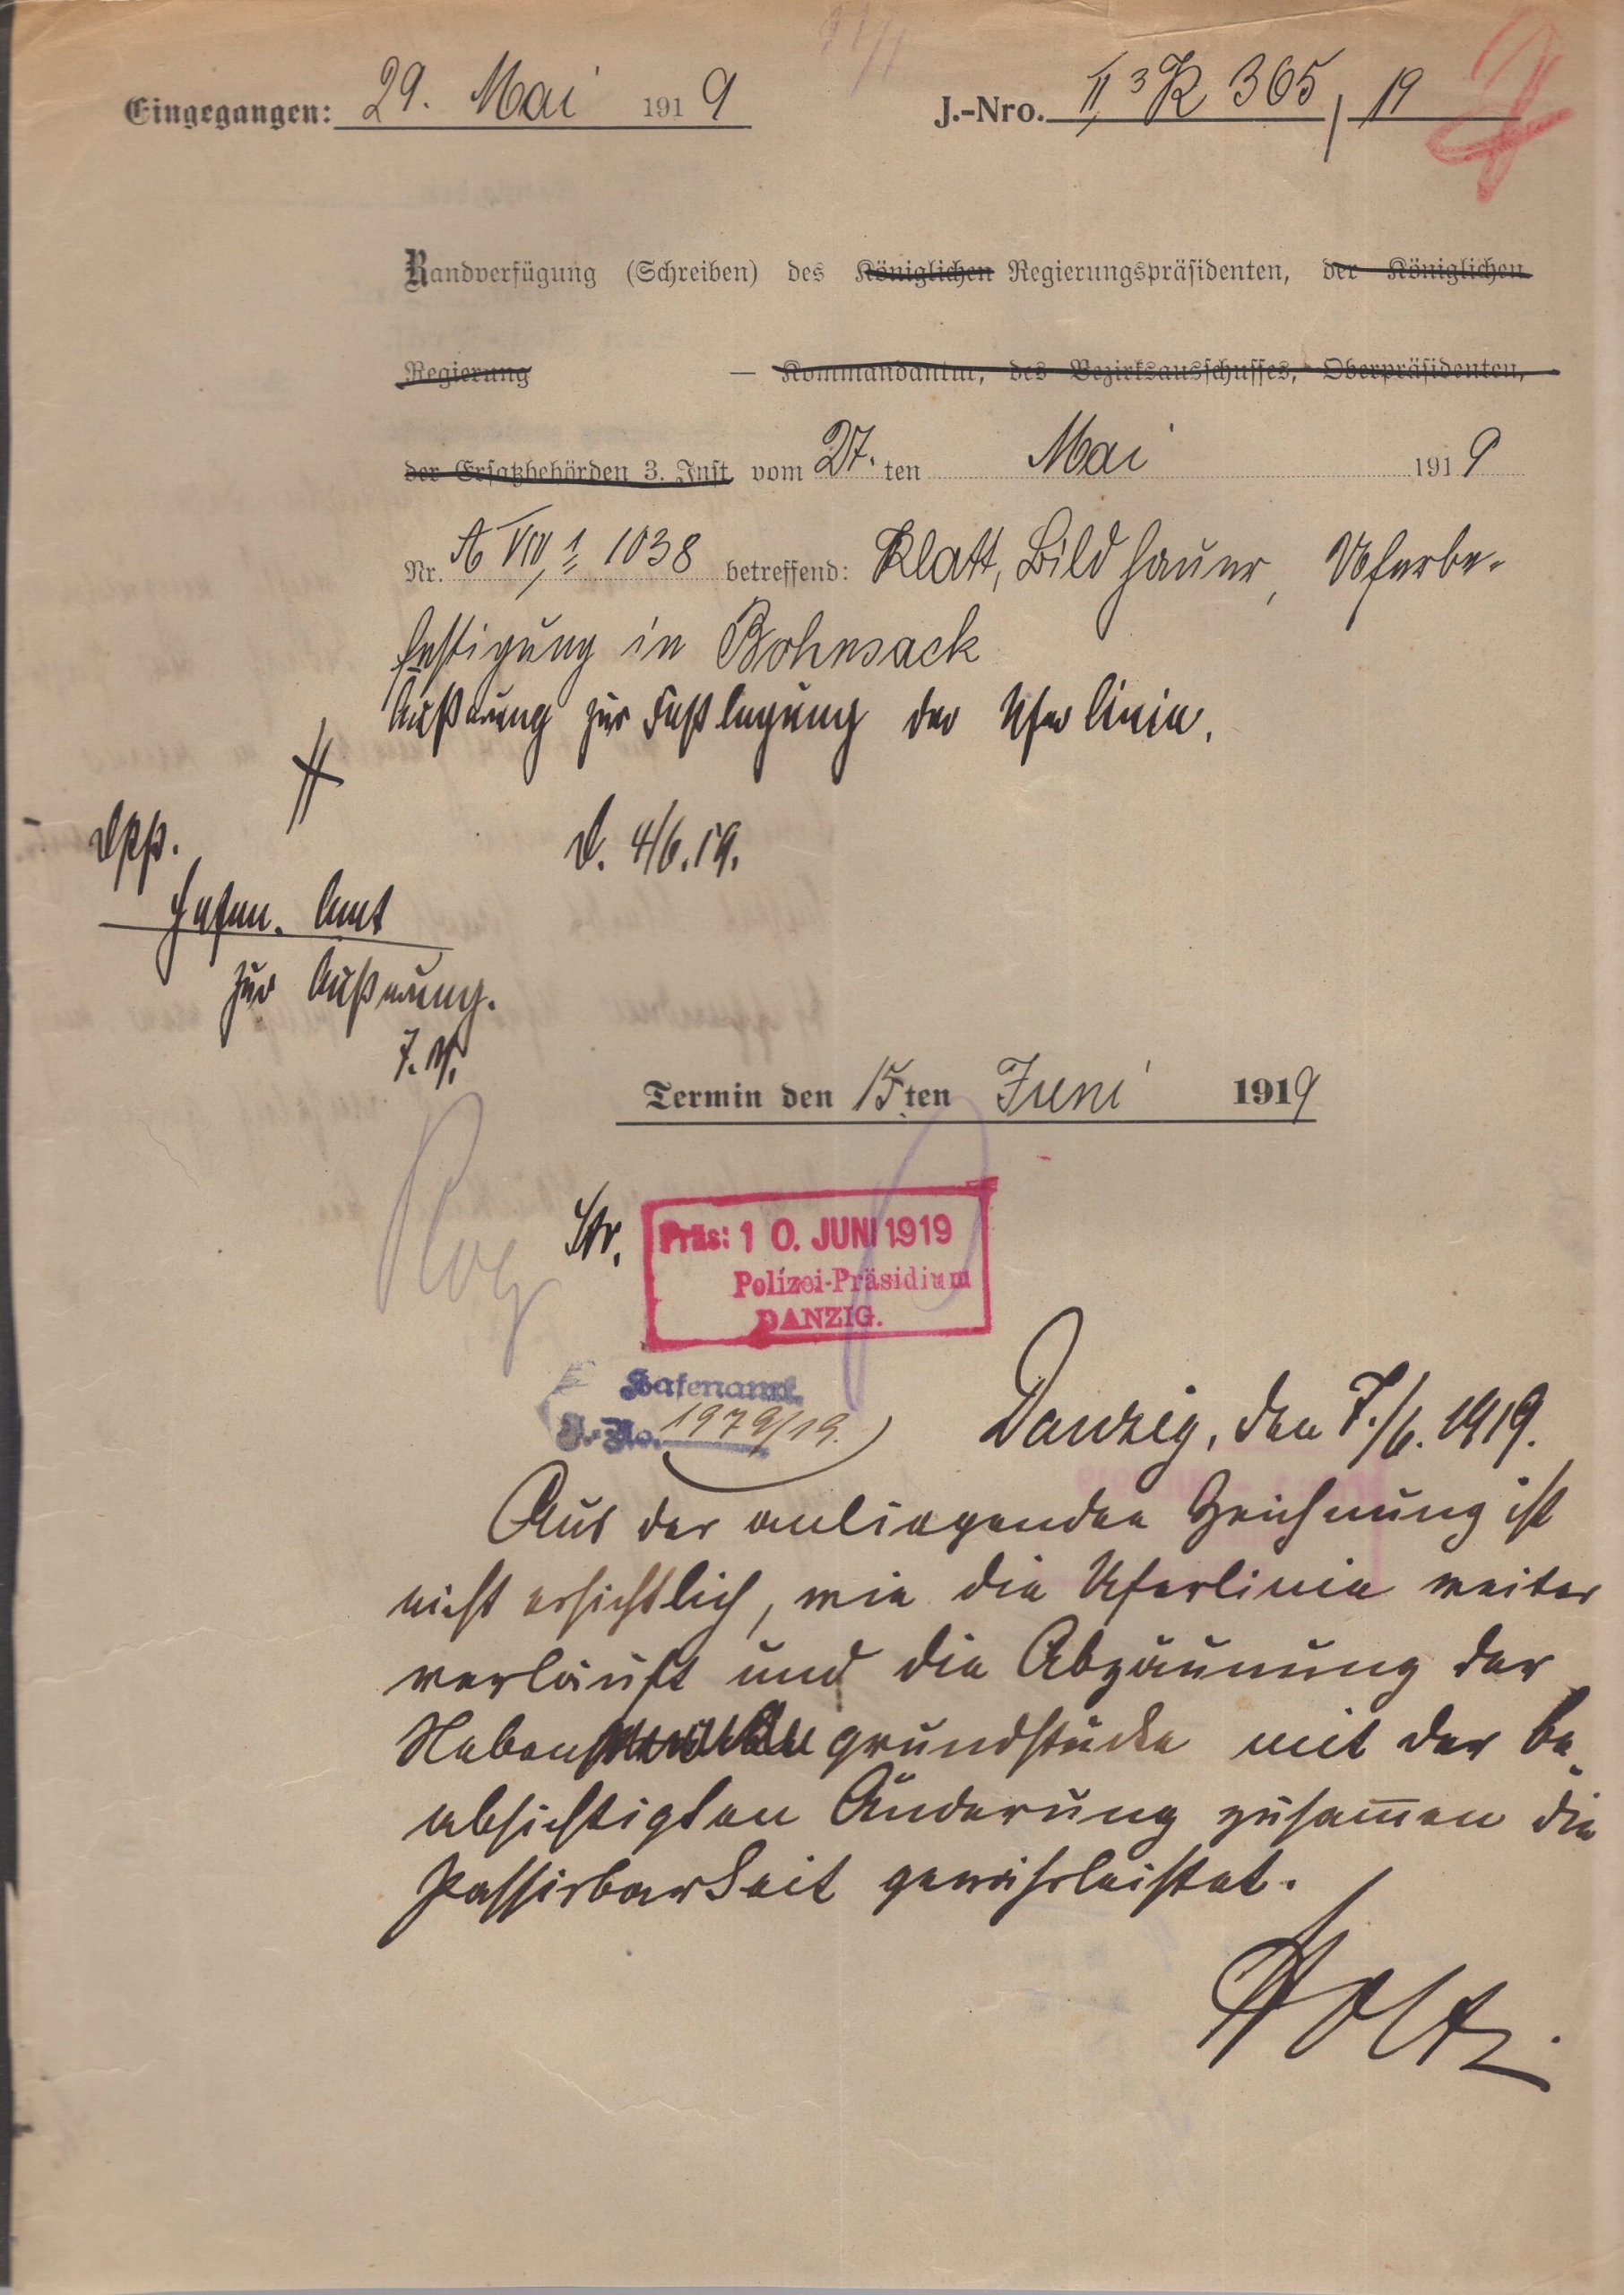 Eingegangen: 29. Mai 1919
J.-Nro. II, 3 R 365/19
Randverfügung (Schreiben) des Königlichen Regierungspräsidenten, der Königlichen
Regierung — Kommandantur, des Bezirksausschusses, Oberpräsidenten,
der Ersatzbehörden 3. Inst. vom 27. ten Mai 1919
Nr. A VIII, 1 1038 betreffend: Klatt, Bildhauer, Uferbe-
festigung in Bohnsack
Äußerung zur Festlegung der Uferlinie.
D. 4/6. 19.
Hafen. Amt
zur Äußerung.
Termin den 15ten Juni 1919
Präs: 10. JUNI 1919
Polizei-Präsidium
DANZIG.
Hafenamt.
J.-No. 1979/19.
Danzig, den 7./6. 1919.
Aus der anliegenden Zeichnung ist
nicht ersichtlich, wie die Uferlinie weiter
verläuft und die Abzäunung der
Neben grundstücke mit der be-
absichtigten Änderung zusammen die
Passirbarkeit gewährleistet.